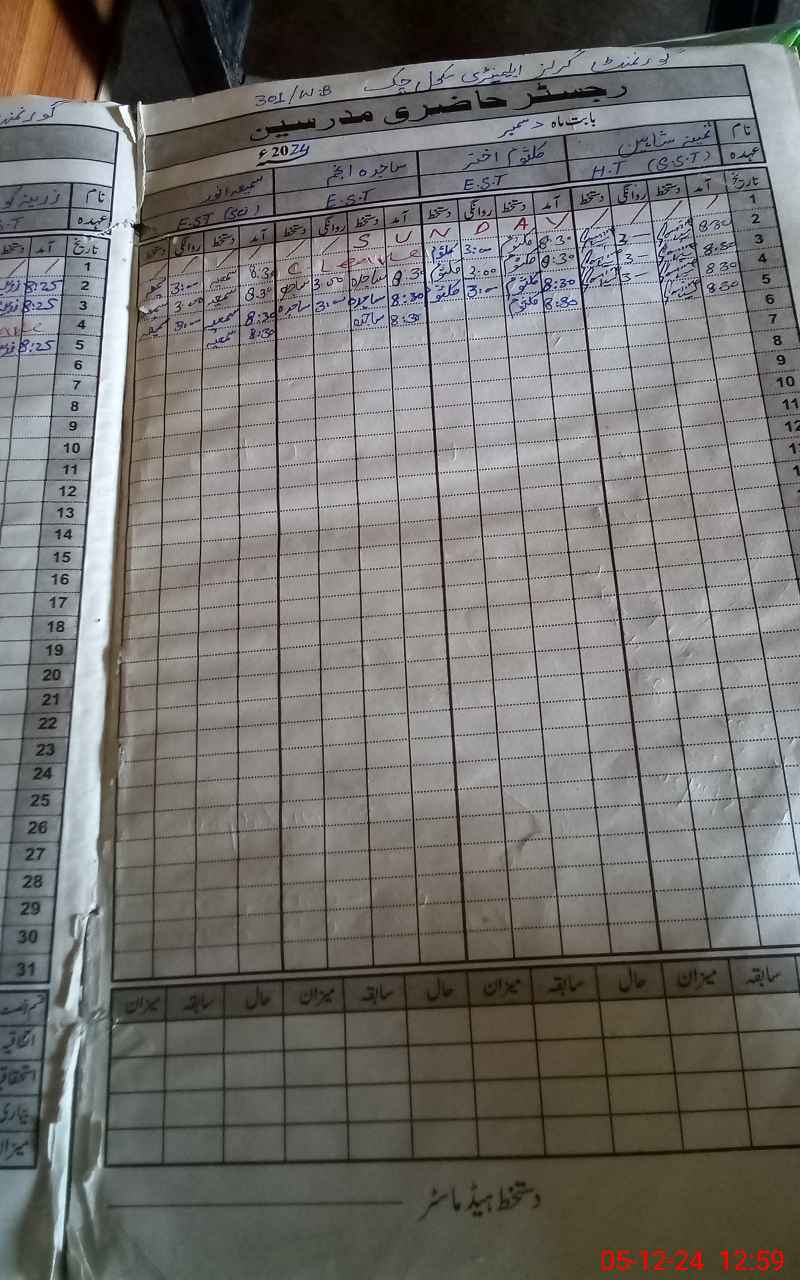 گورنمنٹ گرلز ایلیمنٹری سکول چک 301/W.B
رجسٹر حاضری مدرسین
بابت ماہ دسمبر 2024ء
نام ثمینہ شاہین کلثوم اختر ساجدہ انجم سمیعہ انور
عہدہ H.T (S.S.T) E.S.T E.S.T E.S.T (Sci)
تاریخ آمد دستخط روانگی دستخط آمد دستخط روانگی دستخط آمد دستخط روانگی دستخط آمد دستخط روانگی دستخط
1 / / / / S U N D A Y / / / /
2 8:30 3- 8:30 کلثوم 3:00 کلثوم C Leave 8:30 سمیعہ 3:00 سمیعہ
3 8:30 3- 8:30 کلثوم 3:00 کلثوم 8:30 ساجدہ 3:00 ساجدہ 8:30 سمیعہ 3:00 سمیعہ
4 8:30 3- 8:30 کلثوم 3:00 کلثوم 8:30 ساجدہ 3:00 ساجدہ 8:30 سمیعہ 3:00 سمیعہ
5 8:30 8:30 کلثوم 8:30 ساجدہ 8:30 سمیعہ
6
7
8
9
10
11
12
سابقہ میزان حال سابقہ میزان حال سابقہ میزان حال سابقہ میزان
دستخط ہیڈ ماسٹر
نام
عہدہ S.T
تاریخ آمد دستخط
1 / /
2 8:25
3 8:25
4
5 8:25
6
7
8
9
10
11
12
13
14
15
16
17
18
19
20
21
22
23
24
25
26
27
28
29
30
31
اتفاقیہ
استحقاقیہ
بیماری
میزان
05-12-24 12:59